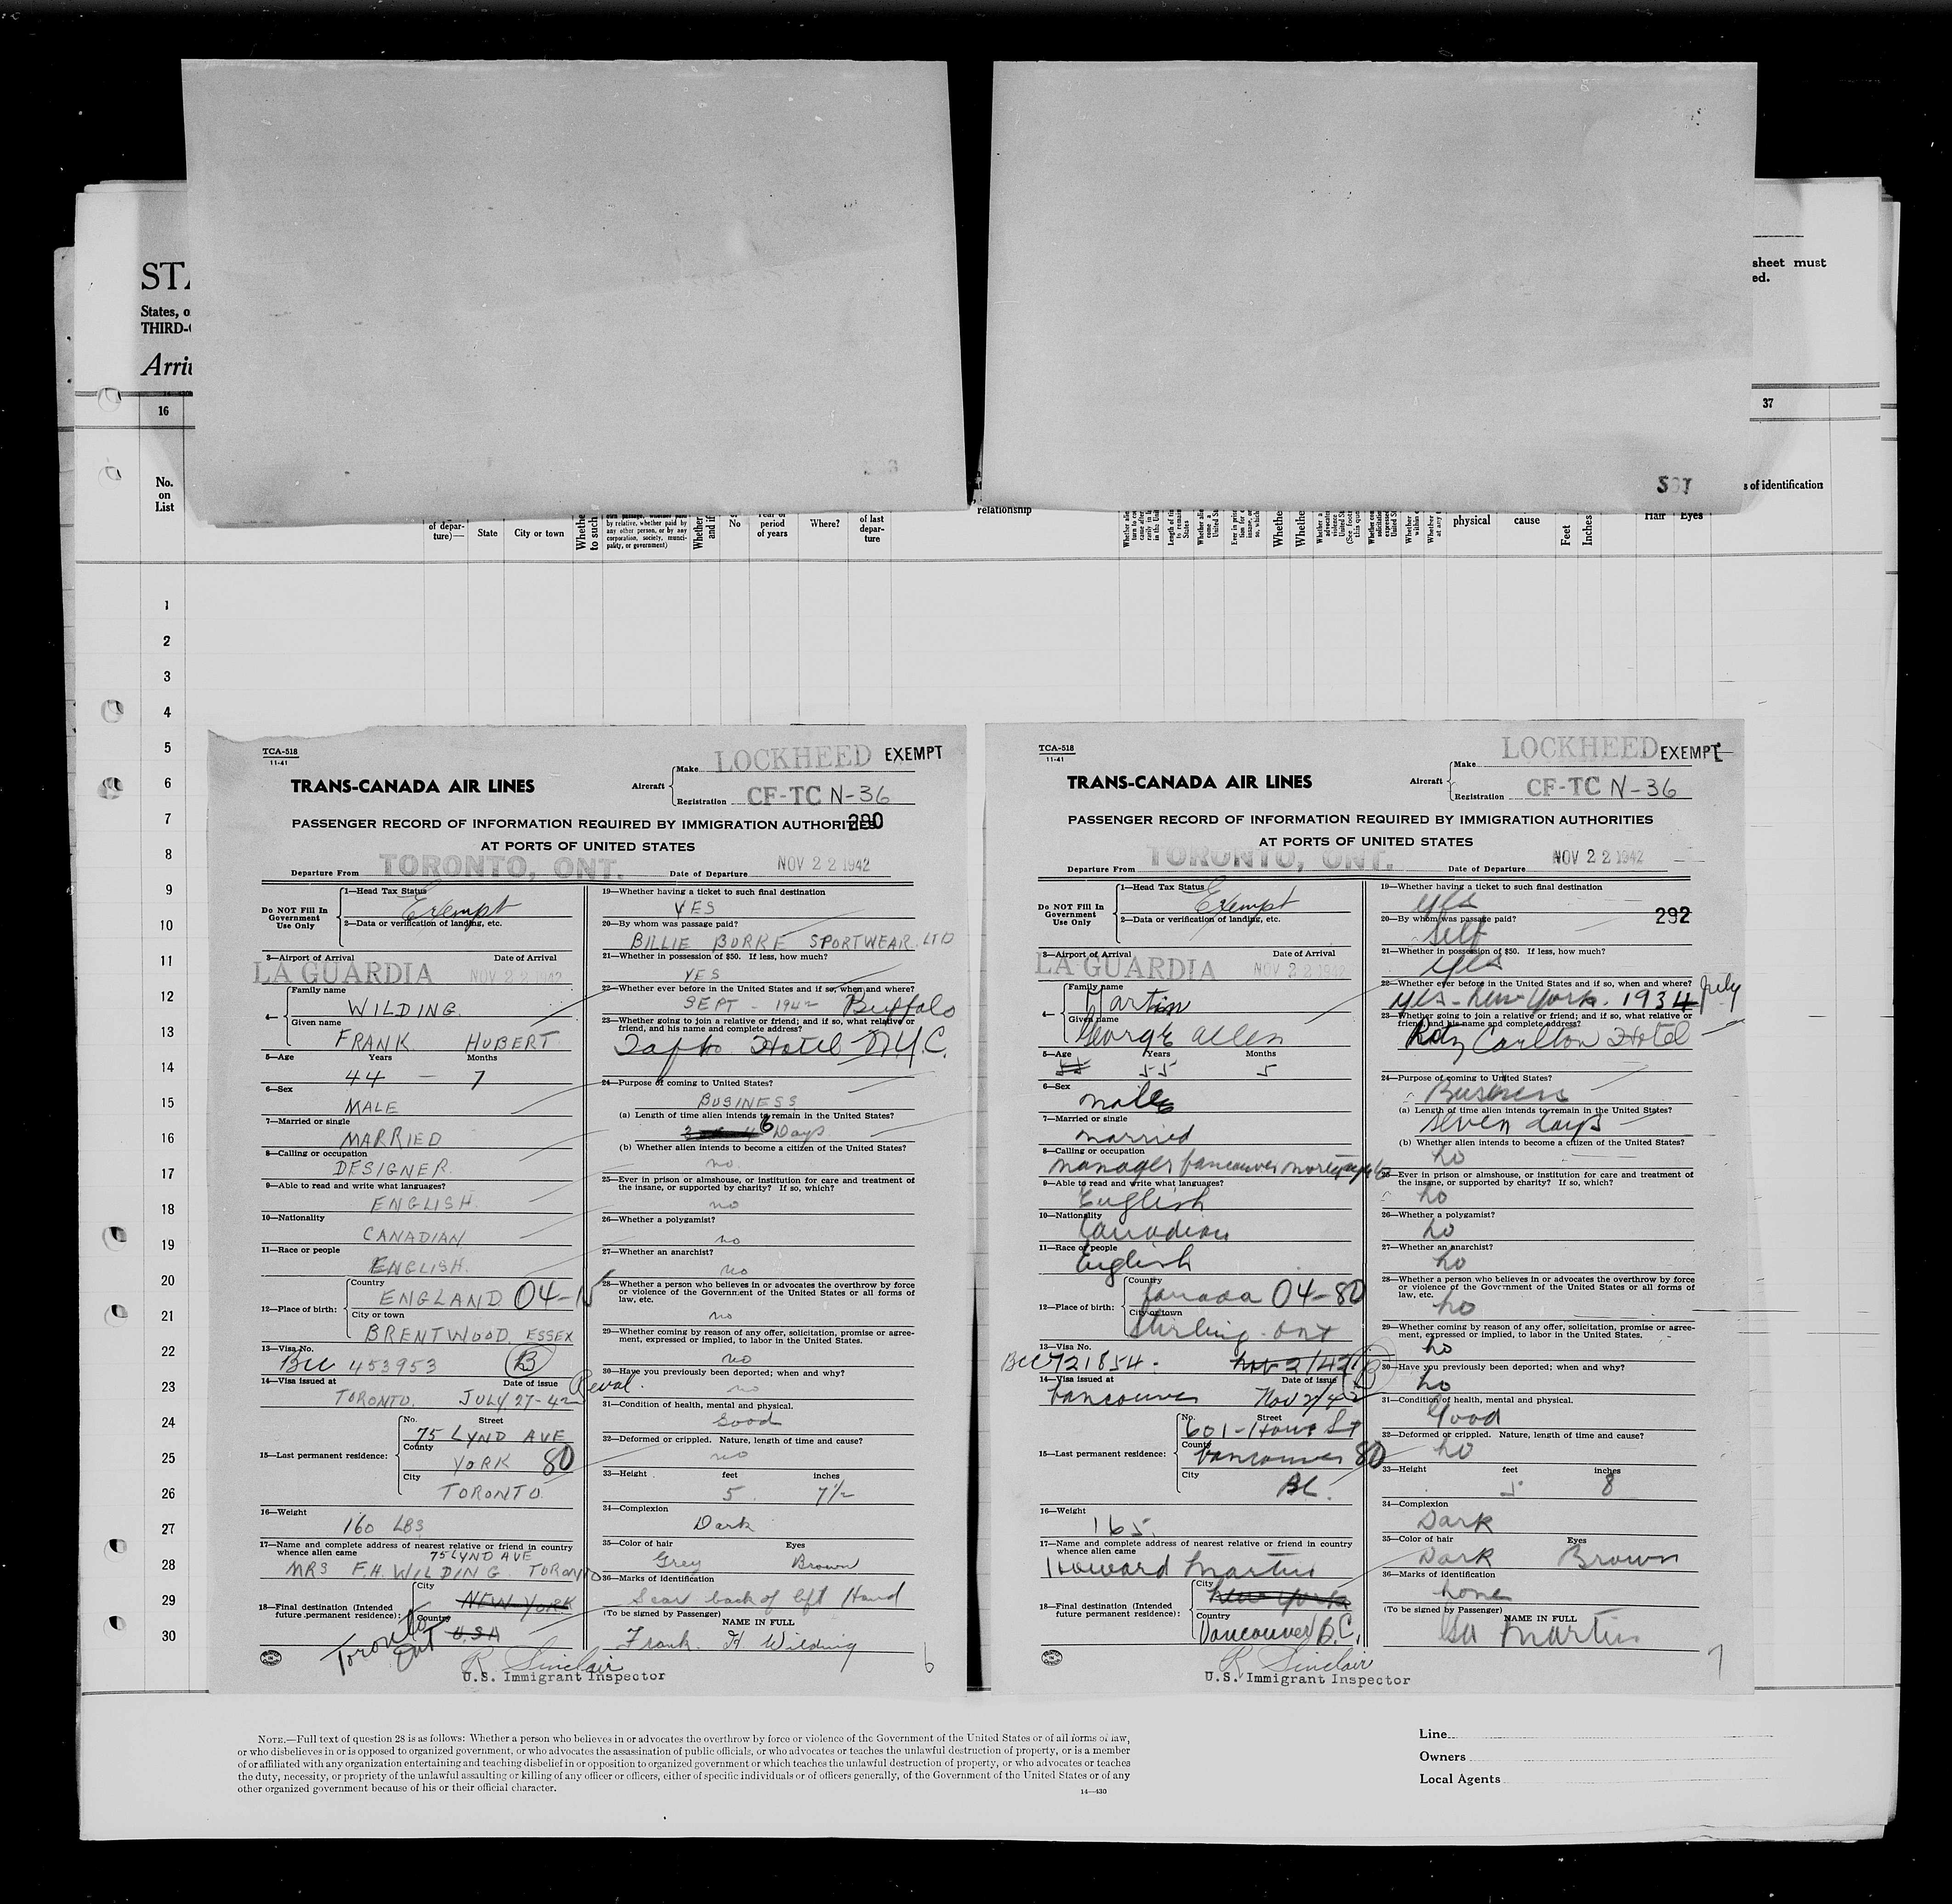 STA
States, o
THIRD-
Arri
sheet must
ed.
16
37
No.
on
List
of depar-
ture)—
State
City or town
Whethe
to such
by relative, whether paid by
any other person, or by any
corporation, society, munici-
pality, or government)
Whether
and if
No
period
of years
Where?
of last
depar-
ture
relationship
Whethe
Whethe
physical
cause
Feet
Inches
Hair
Eyes
s of identification
1
2
3
4
5
6
7
8
9
10
11
12
13
14
15
16
17
18
19
20
21
22
23
24
25
26
27
28
29
30
TCA-518
11-41
LOCKHEED EXEMPT
Make
TRANS-CANADA AIR LINES
Aircraft
Registration CF-TC N-36
PASSENGER RECORD OF INFORMATION REQUIRED BY IMMIGRATION AUTHORITIES
290
AT PORTS OF UNITED STATES
Departure From TORONTO, ONT. Date of Departure NOV 22 1942
Do NOT Fill In
Government
Use Only
1—Head Tax Status
Exempt
2—Data or verification of landing, etc.
3—Airport of Arrival Date of Arrival
LA GUARDIA NOV 22 1942
4—
Family name
WILDING
Given name
FRANK HUBERT
5—Age Years Months
44 — 7
6—Sex
MALE
7—Married or single
MARRIED
8—Calling or occupation
DESIGNER
9—Able to read and write what languages?
ENGLISH
10—Nationality
CANADIAN
11—Race or people
ENGLISH.
12—Place of birth:
Country
ENGLAND 04-
City or town
BRENTWOOD ESSEX
13—Visa No.
453953 B
14—Visa issued at Date of issue
TORONTO. JULY 27-42
15—Last permanent residence:
No. Street
75 LYND AVE
County
YORK 80
City
TORONTO
16—Weight
160 LBS
17—Name and complete address of nearest relative or friend in country
whence alien came 75 LYND AVE
MRS F.H. WILDING. TORONTO
18—Final destination (Intended
future permanent residence):
City
NEW YORK
Country
U.S.A
Toronto
Ont
R Sinclair
U.S. Immigrant Inspector
19—Whether having a ticket to such final destination
YES
20—By whom was passage paid?
BILLIE BURKE SPORTWEAR LTD
21—Whether in possession of $50. If less, how much?
YES
22—Whether ever before in the United States and if so, when and where?
SEPT - 1942 Buffalo
23—Whether going to join a relative or friend; and if so, what relative or
friend, and his name and complete address?
Taft Hotel N.Y.C.
24—Purpose of coming to United States?
BUSINESS
(a) Length of time alien intends to remain in the United States?
6 Days
(b) Whether alien intends to become a citizen of the United States?
no.
25—Ever in prison or almshouse, or institution for care and treatment of
the insane, or supported by charity? If so, which?
no
26—Whether a polygamist?
no
27—Whether an anarchist?
no
28—Whether a person who believes in or advocates the overthrow by force
or violence of the Government of the United States or all forms of
law, etc.
no
29—Whether coming by reason of any offer, solicitation, promise or agree-
ment, expressed or implied, to labor in the United States.
no
30—Have you previously been deported; when and why?
no
31—Condition of health, mental and physical.
Good
32—Deformed or crippled. Nature, length of time and cause?
no
33—Height feet inches
5 7½
34—Complexion
Dark
35—Color of hair Eyes
Grey Brown
36—Marks of identification
Scar back of left Hand
(To be signed by Passenger) NAME IN FULL
Frank. H. Wilding
6
TCA-518
11-41
LOCKHEED EXEMPT
Make
TRANS-CANADA AIR LINES
Aircraft
Registration CF-TC N-36
PASSENGER RECORD OF INFORMATION REQUIRED BY IMMIGRATION AUTHORITIES
AT PORTS OF UNITED STATES
Departure From TORONTO, ONT. Date of Departure NOV 22 1942
Do NOT Fill In
Government
Use Only
1—Head Tax Status
Exempt
2—Data or verification of landing, etc.
3—Airport of Arrival Date of Arrival
LA GUARDIA NOV 22 1942
4—
Family name
Martin
Given name
George Allen
5—Age Years Months
55 5
6—Sex
male
7—Married or single
married
8—Calling or occupation
manager Vancouver
9—Able to read and write what languages?
English
10—Nationality
Canadian
11—Race or people
English
12—Place of birth:
Country
Canada 04-80
City or town
Stirling - Ont
13—Visa No.
721854. Nov 2/42 B
14—Visa issued at Date of issue
Vancouver Nov 2/42
15—Last permanent residence:
No. Street
601-Howe St
County
Vancouver 80
City
BC.
16—Weight
165.
17—Name and complete address of nearest relative or friend in country
whence alien came
Howard Martin
18—Final destination (Intended
future permanent residence):
City
New York
Country
Vancouver B.C.
R Sinclair
U.S. Immigrant Inspector
19—Whether having a ticket to such final destination
yes
292
20—By whom was passage paid?
Self
21—Whether in possession of $50. If less, how much?
yes
22—Whether ever before in the United States and if so, when and where?
yes - New York. 1934 July
23—Whether going to join a relative or friend; and if so, what relative or
friend, and his name and complete address?
Ritz Carlton Hotel
24—Purpose of coming to United States?
Business
(a) Length of time alien intends to remain in the United States?
seven days
(b) Whether alien intends to become a citizen of the United States?
no
25—Ever in prison or almshouse, or institution for care and treatment of
the insane, or supported by charity? If so, which?
no
26—Whether a polygamist?
no
27—Whether an anarchist?
no
28—Whether a person who believes in or advocates the overthrow by force
or violence of the Government of the United States or all forms of
law, etc.
no
29—Whether coming by reason of any offer, solicitation, promise or agree-
ment, expressed or implied, to labor in the United States.
no
30—Have you previously been deported; when and why?
no
31—Condition of health, mental and physical.
Good
32—Deformed or crippled. Nature, length of time and cause?
no
33—Height feet inches
5 8
34—Complexion
Dark
35—Color of hair Eyes
Dark Brown
36—Marks of identification
none
(To be signed by Passenger) NAME IN FULL
Martin
7
NOTE.—Full text of question 28 is as follows: Whether a person who believes in or advocates the overthrow by force or violence of the Government of the United States or of all forms of law,
or who disbelieves in or is opposed to organized government, or who advocates the assassination of public officials, or who advocates or teaches the unlawful destruction of property, or is a member
of or affiliated with any organization entertaining and teaching disbelief in or opposition to organized government or which teaches the unlawful destruction of property, or who advocates or teaches
the duty, necessity, or propriety of the unlawful assaulting or killing of any officer or officers, either of specific individuals or of officers generally, of the Government of the United States or of any
other organized government because of his or their official character.
14—430
Line
Owners
Local Agents